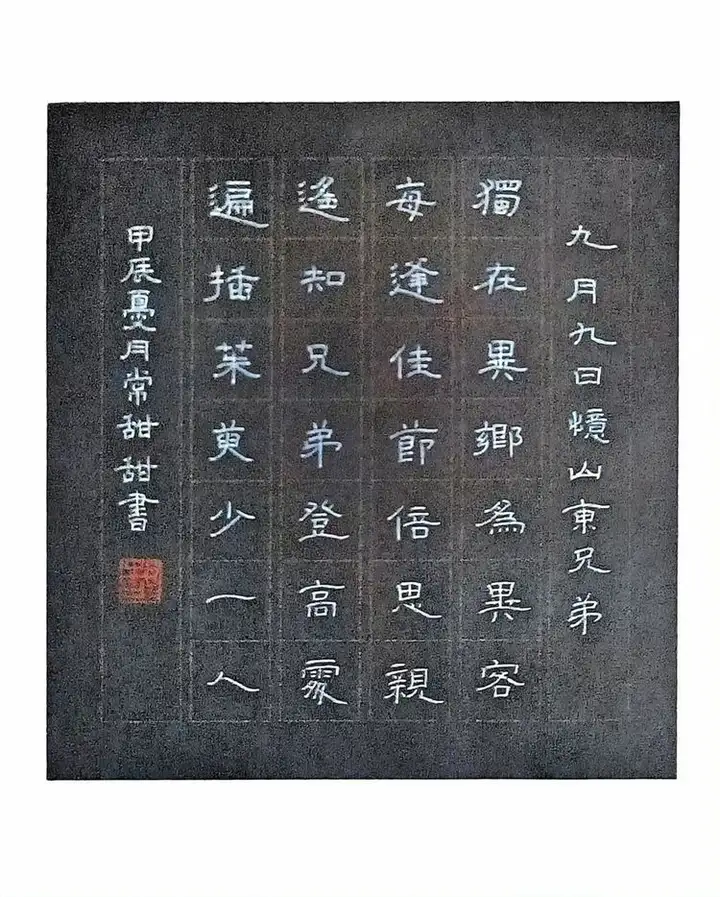 九月九日憶山東兄弟
獨在異鄉為異客
每逢佳節倍思親
遙知兄弟登高處
遍插茱萸少一人
甲辰夏月常甜甜書